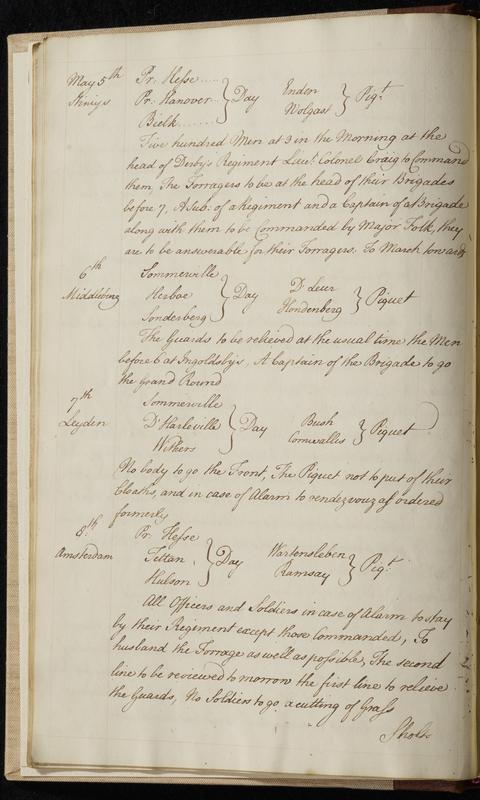 May 5th Pr. Hesse.....
Pr. Hanover.. } Day Enden } Piqt
Bielk....... Wolgast
Five hundred Men at 3 in the Morning at the
head of Derby's Regiment Lieut. Colonel Craig to Command
them, The Forragers to be at the head of their Brigades
before 7, A Sub: of a Regiment and a Captain of a Brigade
along with them to be Commanded by Major Folk, they
are to be answerable for their Forragers. To March towards
6th Sommerville
Middleburg Herboe } Day D'Leur } Piquet
Sonderberg Hondenberg
The Guards to be relieved at the usual time the Men
before 6 at Ingoldsby's, A Captain of the Brigade to go
the Grand Round
7th Sommerville
Leyden D'Harleville } Day Bush } Piquet
Withers Cornwallis
No body to go the Front, The Piquet not to put of their
Cloaths, and in case of Alarm to rendezvouz as ordered
formerly
8th Pr. Hesse
Amsterdam Tettan } Day Wartensleben } Piqt
Hulson Ramsay
All Officers and Soldiers in case of Alarm to stay
by their Regiment except those Commanded, To
husband the Forrage as well as possible, The second
line to be reviewed to morrow the first line to relieve
the Guards, No Soldiers to go a cutting of Grass